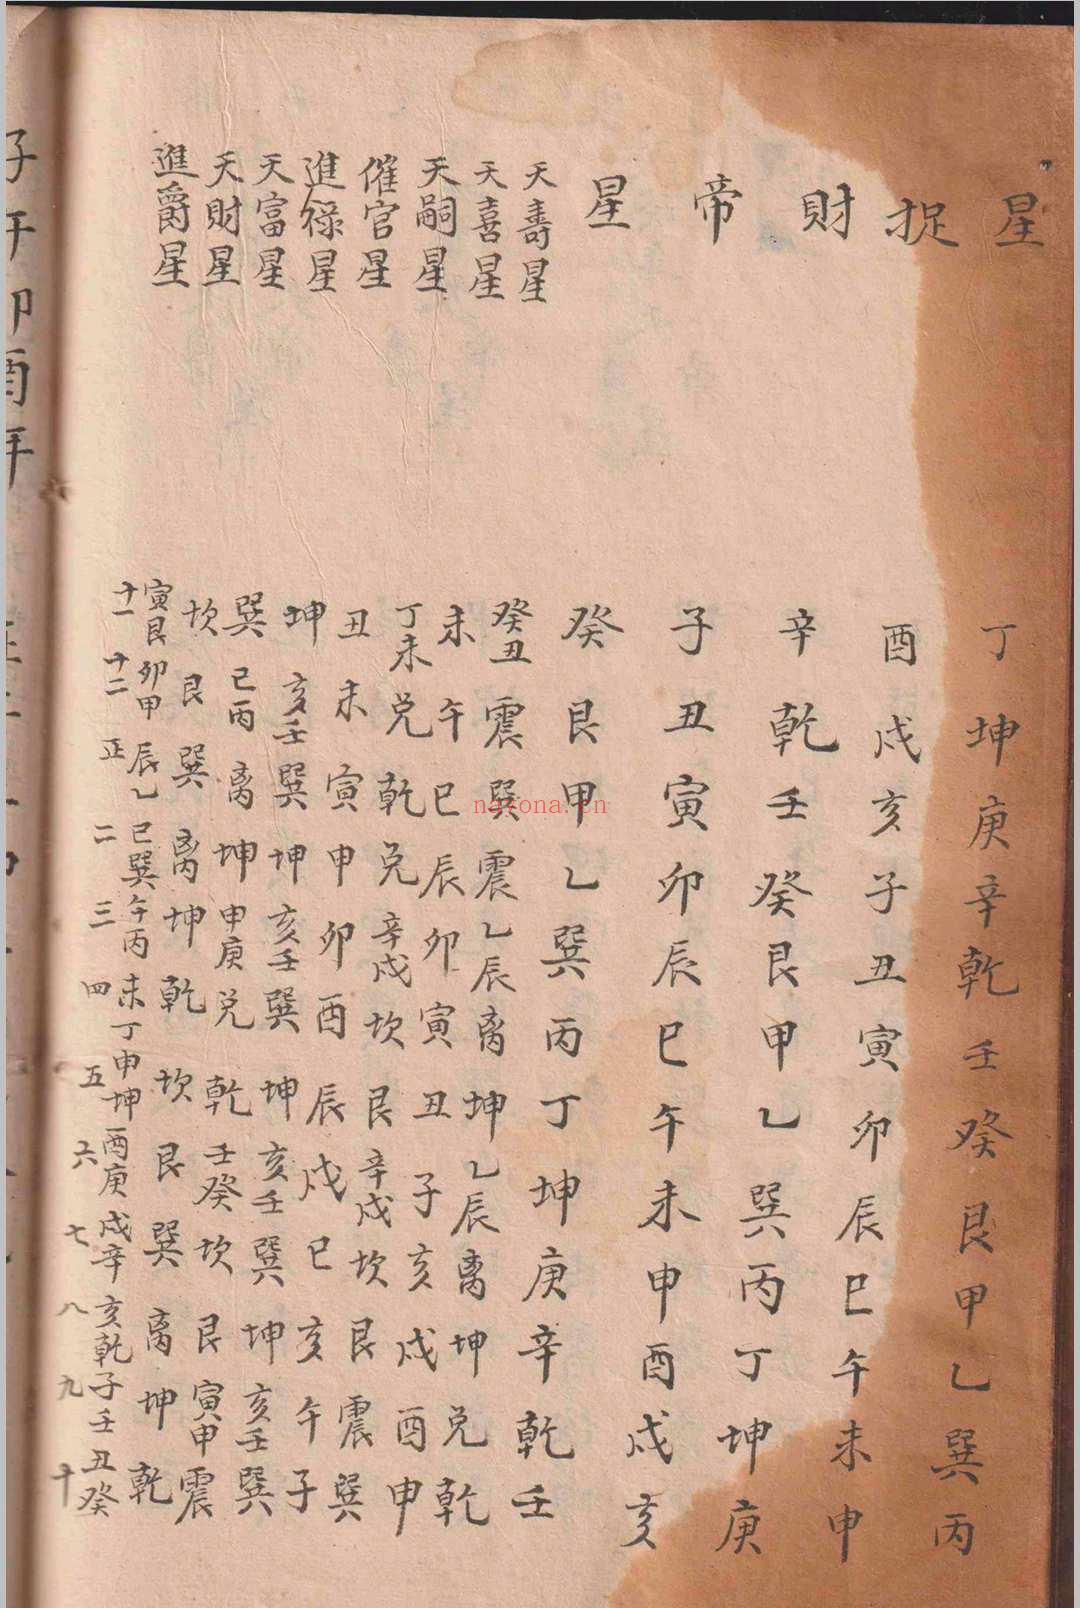 星 丁坤庚辛乾壬癸艮甲乙巽丙
捉 酉戌亥子丑寅卯辰巳午未申
財 辛乾壬癸艮甲乙巽丙丁坤庚
帝 子丑寅卯辰巳午未申酉戌亥
星 癸艮甲乙巽丙丁坤庚辛乾壬
天壽星 癸丑 震 巽 震 乙辰 离 坤 乙辰 离 坤 兌 乾
天喜星 未午巳辰卯寅丑子亥戌酉申
天嗣星 丁未 兌 乾 兌 辛戌 坎 艮 辛戌 坎 艮 震 巽
催官星 丑未寅申卯酉辰戌巳亥午子
進祿星 坤 亥壬 巽 坤 亥壬 巽 坤 亥壬 巽 坤 亥壬 巽
天富星 巽 巳丙 离 坤 申庚 兌 乾 壬癸 坎 艮 寅甲 震
天財星 坎艮巽离坤乾坎艮巽离坤乾
進爵星 寅艮 卯甲 辰乙 巳巽 午丙 未丁 申坤 酉庚 戌辛 亥乾 子壬 丑癸
十一 十二 正 二 三 四 五 六 七 八 九 十
子午卯酉年
nayona.cn